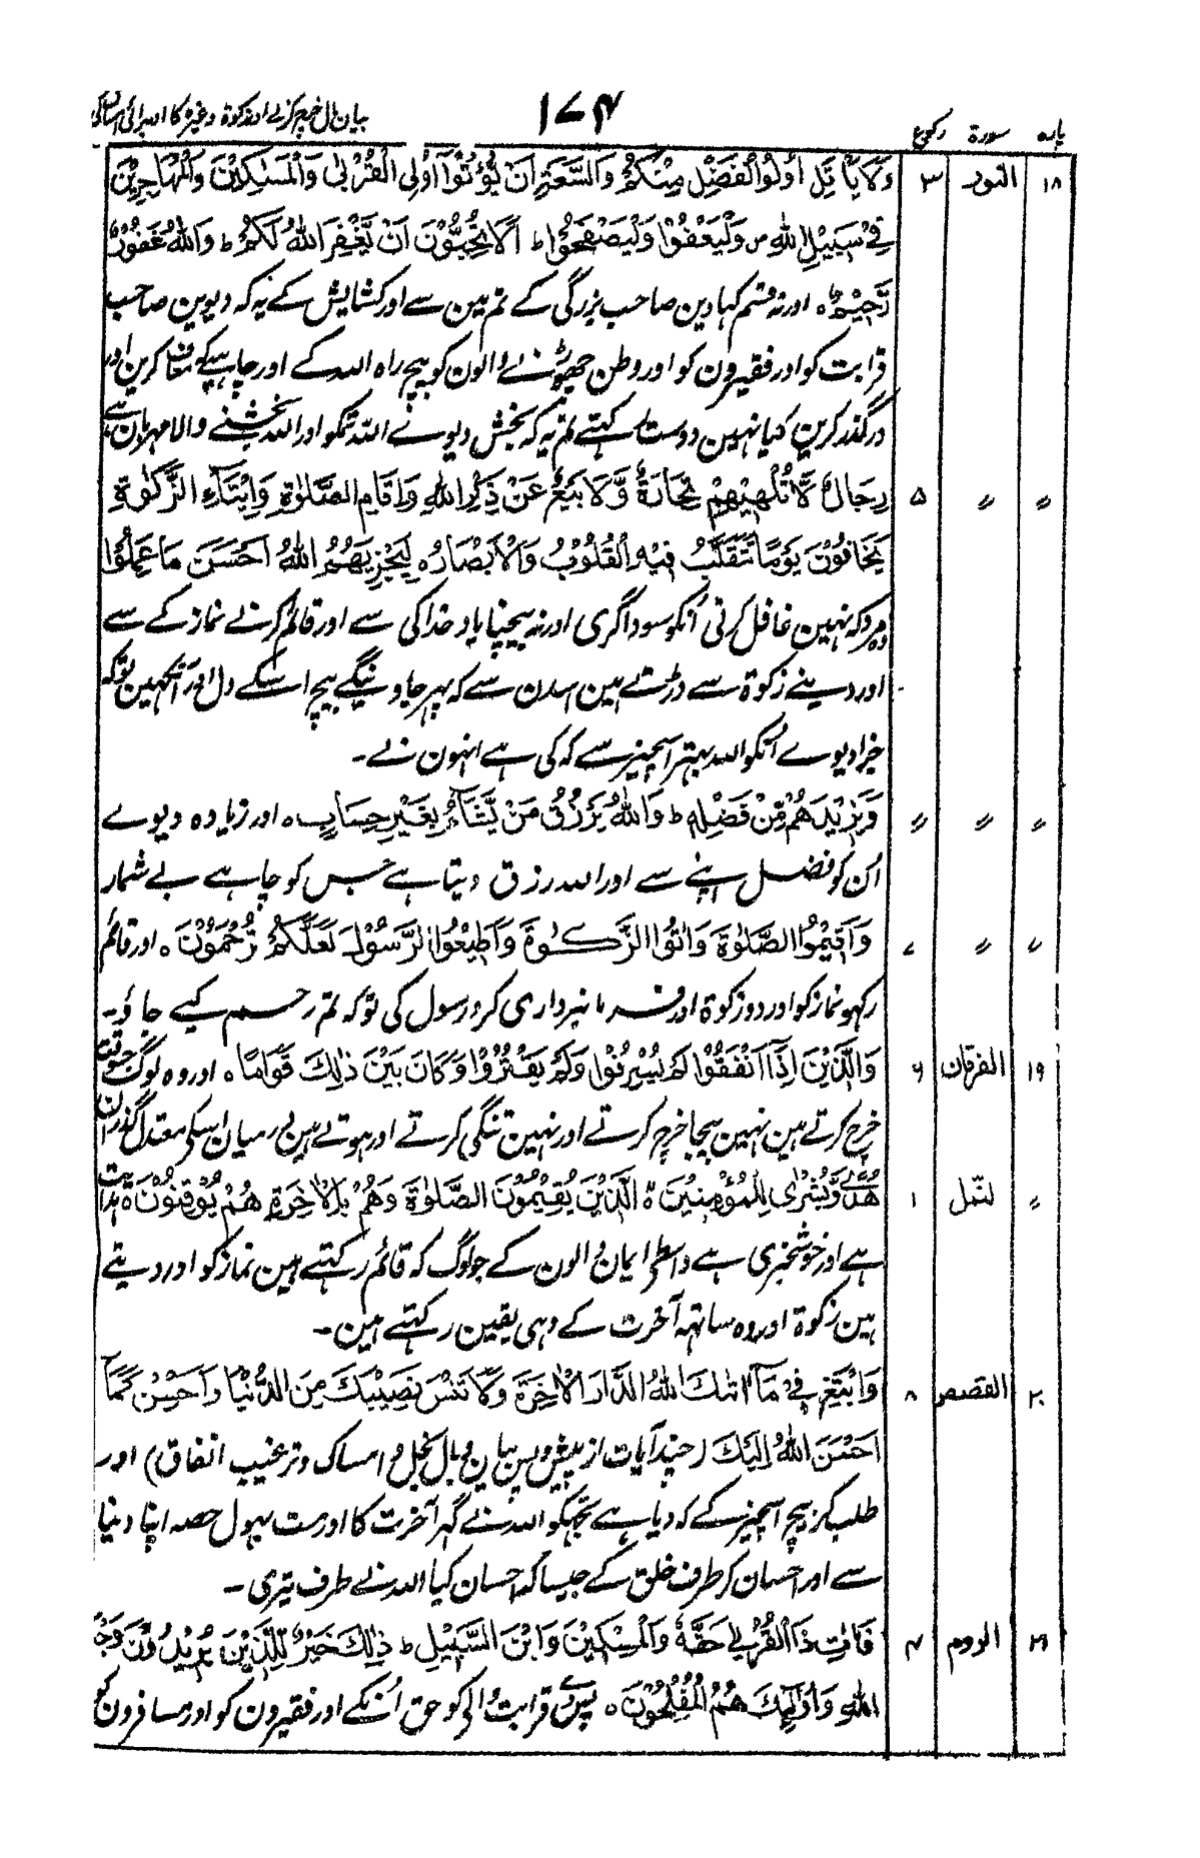 پارہ سورۃ رکوع ۱۷۴ بیان مال خرچ کرنے اور زکوۃ وغیرہ کا
۱۸ النور ۳ وَلَا يَأْتَلِ أُولُوا الْفَضْلِ مِنْكُمْ وَالسَّعَةِ اَنْ يُّؤْتُوْٓا اُولِى الْقُرْبٰى وَالْمَسٰكِيْنَ وَالْمُهَاجِرِيْنَ
فِيْ سَبِيْلِ اللّٰهِ ص وَلْيَعْفُوْا وَلْيَصْفَحُوْا ط اَلَا تُحِبُّوْنَ اَنْ يَّغْفِرَ اللّٰهُ لَكُمْ ط وَاللّٰهُ غَفُوْرٌ
رَّحِيْمٌ ه اور نہ قسم کہاوین صاحب بزرگی کے تم مین سے اور کشایش کے یہ کہ دیوین صاحب
قرابت کو اور فقیرون کو اور وطن چھوڑنے والون کو بیچ راہ اللہ کے اور چاہیے کہ معاف کرین اور
درگذر کرین کیا نہین دوست رکہتے تم یہ کہ بخش دیوے اللہ تمکو اور اللہ بخشنے والا مہربان ہے
〃 〃 ۵ رِجَالٌ لَّا تُلْهِيْهِمْ تِجَارَةٌ وَّلَا بَيْعٌ عَنْ ذِكْرِ اللّٰهِ وَاِقَامِ الصَّلٰوةِ وَاِيْتَآءِ الزَّكٰوةِ
يَخَافُوْنَ يَوْمًا تَتَقَلَّبُ فِيْهِ الْقُلُوْبُ وَالْاَبْصَارُ ه لِيَجْزِيَهُمُ اللّٰهُ اَحْسَنَ مَا عَمِلُوْا
وہ مرد کہ نہین غافل کرتی اُنکو سوداگری اور نہ بیچنا یاد خدا کی سے اور قائم کرنے نماز کے سے
اور دینے زکوۃ سے ڈرتے ہین اسدن سے کہ پہر جاوینگے بیچ اسکے دل اور آنکہین توکہ
جزا دیوے اُنکو اللہ بہتر اسچیز سے کہ کی ہے انہون نے۔
〃 〃 〃 وَيَزِيْدَهُمْ مِّنْ فَضْلِهٖ ط وَاللّٰهُ يَرْزُقُ مَنْ يَّشَآءُ بِغَيْرِ حِسَابٍ ه اور زیادہ دیوے
اُن کو فضل اپنے سے اور اللہ رزق دیتا ہے جس کو چاہے بے شمار
〃 〃 ۷ وَاَقِيْمُوا الصَّلٰوةَ وَاٰتُوا الزَّكٰوةَ وَاَطِيْعُوا الرَّسُوْلَ لَعَلَّكُمْ تُرْحَمُوْنَ ه اور قائم
رکہو نماز کو اور دو زکوۃ اور فرمانبرداری کرو رسول کی توکہ تم رحم کیے جاؤ۔
۱۹ الفرقان ۶ وَالَّذِيْنَ اِذَآ اَنْفَقُوْا لَمْ يُسْرِفُوْا وَلَمْ يَقْتُرُوْا وَكَانَ بَيْنَ ذٰلِكَ قَوَامًا ه اور وہ لوگ جسوقت
خرچ کرتے ہین نہین بیجا خرچ کرتے اور نہین تنگی کرتے اور ہوتے ہین درمیان اسکی معتدل گذران
〃 النمل ۱ هُدًى وَّبُشْرٰى لِلْمُؤْمِنِيْنَ ه الَّذِيْنَ يُقِيْمُوْنَ الصَّلٰوةَ وَهُمْ بِالْاٰخِرَةِ هُمْ يُوْقِنُوْنَ ه ہدایت
ہے اور خوشخبری ہے واسطے ایمان والون کے جو لوگ کہ قائم رکہتے ہین نماز کو اور دیتے
ہین زکوۃ اور وہ ساتہہ آخرت کے وہی یقین رکہتے ہین۔
۲۰ القصص ۸ وَابْتَغِ فِيْ مَآ اٰتٰىكَ اللّٰهُ الدَّارَ الْاٰخِرَةَ وَلَا تَنْسَ نَصِيْبَكَ مِنَ الدُّنْيَا وَاَحْسِنْ كَمَآ
اَحْسَنَ اللّٰهُ اِلَيْكَ (چند آیات از پیش و پس بیان وبال بخل و امساک و ترغیب انفاق) اور
طلب کر بیچ اسچیز کے کہ دیا ہے تجہکو اللہ نے گہر آخرت کا اور مت بہول حصہ اپنا دنیا
سے اور احسان کر طرف خلق کے جیسا کہ احسان کیا اللہ نے طرف تیری۔
۲۱ الروم ۴ فَاٰتِ ذَا الْقُرْبٰى حَقَّهٗ وَالْمِسْكِيْنَ وَابْنَ السَّبِيْلِ ط ذٰلِكَ خَيْرٌ لِّلَّذِيْنَ يُرِيْدُوْنَ وَجْهَ
اللّٰهِ وَاُولٰٓئِكَ هُمُ الْمُفْلِحُوْنَ ه پس دے قرابت والی کو حق اُنکے اور فقیرون کو اور مسافرون کو